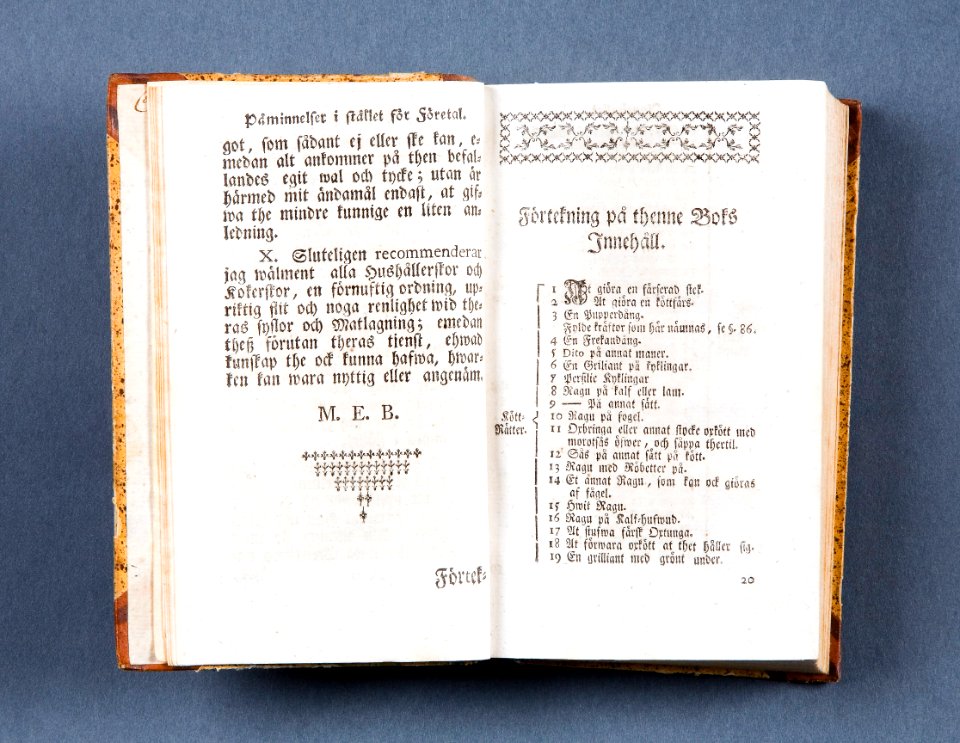 Påminnelser i stället för Företal.
got, som sådant ej eller ske kan, e-
medan alt ankommer på then befal-
landes egit wal och tycke; utan är
härmed mit ändamål endast, at gif-
wa the mindre kunnige en liten an-
ledning.
X. Sluteligen recommenderar
jag wälment alla Hushållerskor och
Kokerskor, en förnuftig ordning, up-
riktig flit och noga renlighet wid the-
ras syslor och Matlagning; emedan
theß förutan theras tienst, ehwad
kunskap the ock kunna hafwa, hwar-
ken kan wara nyttig eller angenäm.
M. E. B.
Förtek-
Förtekning på thenne Boks
Innehåll.
Kött-
Rätter.
1 At giöra en färserad stek.
2 At giöra en köttfärs.
3 En Pupperdång.
Fylde kräftor som här nämnas, se §. 86.
4 En Frekandång.
5 Dito på annat maner.
6 En Griliant på kyklingar.
7 Persilie Kyklingar
8 Ragu på kalf eller lam.
9 — På annat sätt.
10 Ragu på fogel.
11 Oxbringa eller annat stycke oxkött med
morotsås öfwer, och säppa thertil.
12 Sås på annat sätt på kött.
13 Ragu med Röbetter på.
14 Et annat Ragu, som kan ock giöras
af fågel.
15 Hwit Ragu.
16 Ragu på Kalf-hufwud.
17 At stufwa färsk Oxtunga.
18 At förwara oxkött at thet håller sig.
19 En grilliant med grönt under.
20